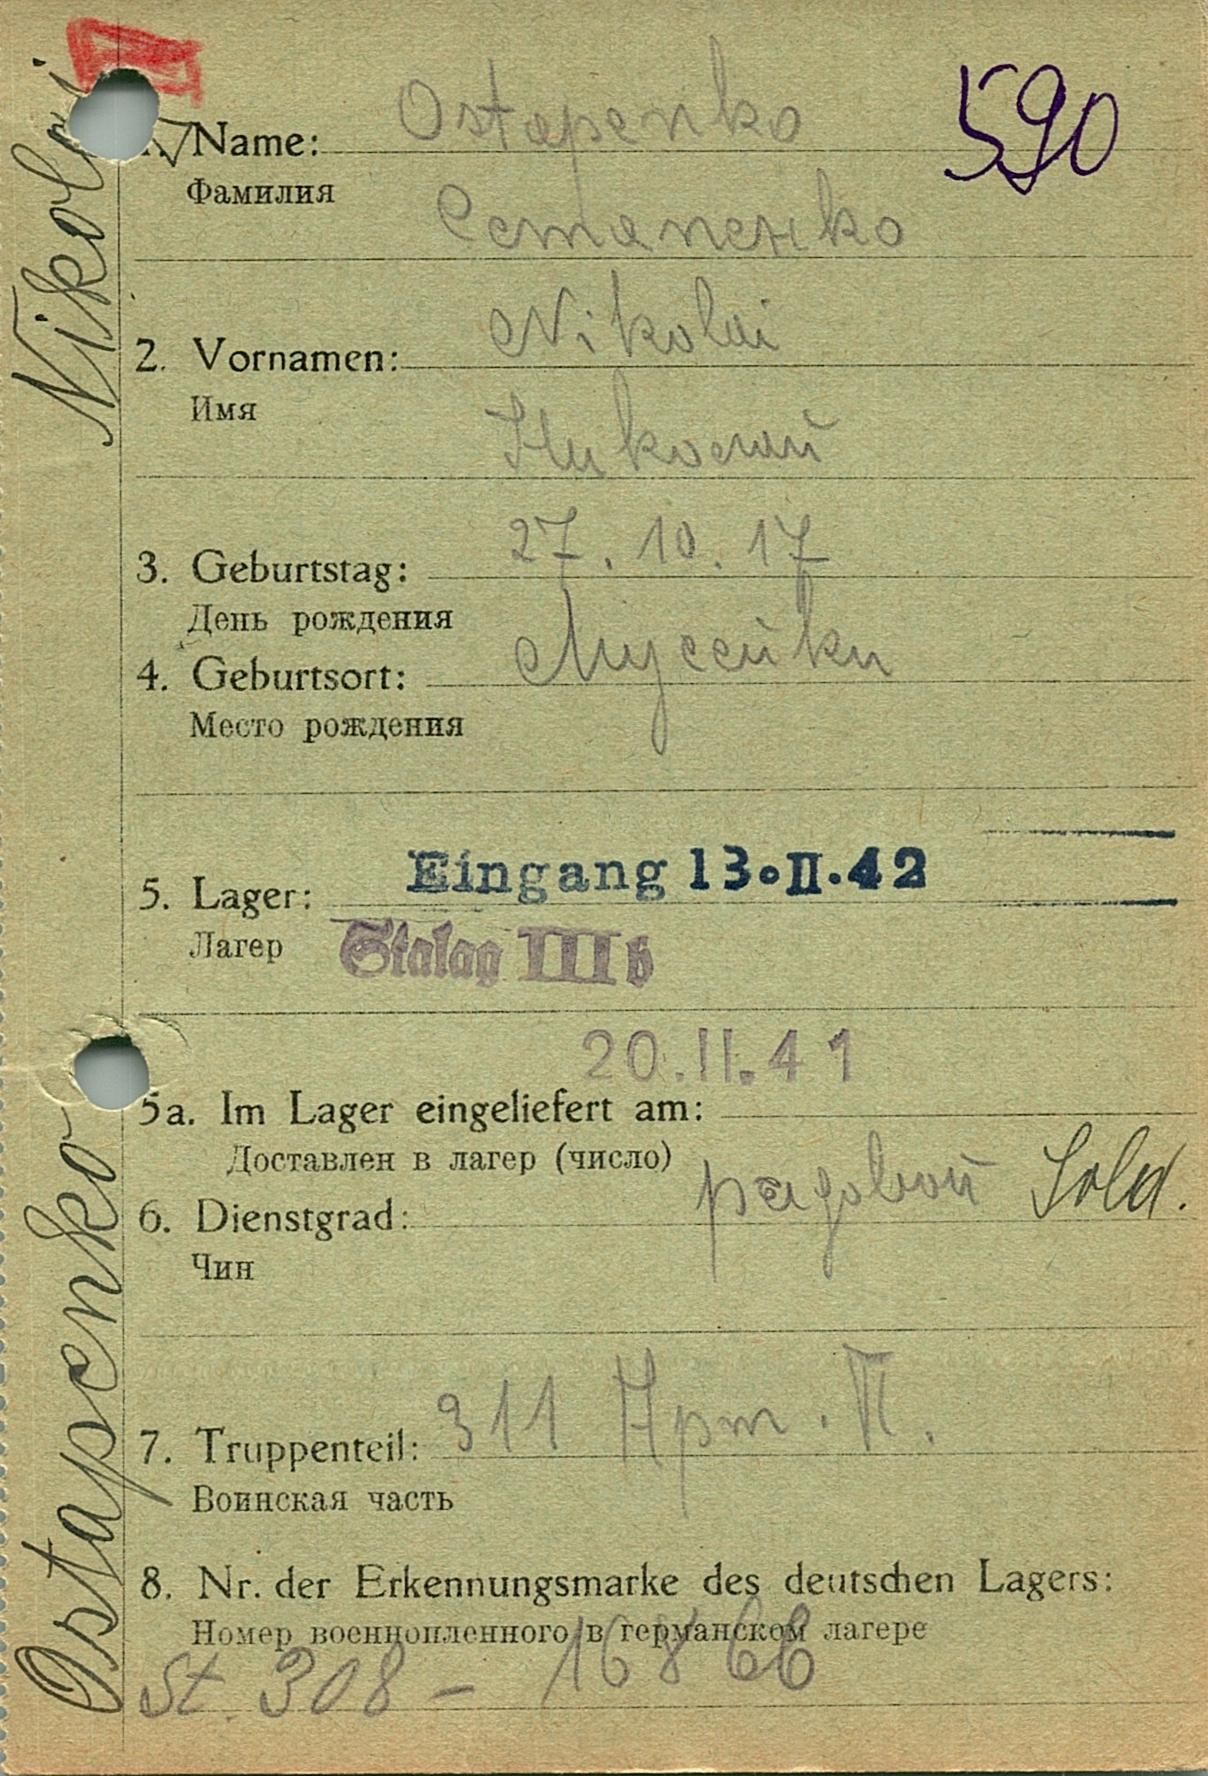 Nikolai
Ostapenko
590
1. Name: Ostapenko
Фамилия
Остапенко
2. Vornamen: Nikolai
Имя
Николай
3. Geburtstag: 27. 10. 17
День рождения
4. Geburtsort: Мусейки
Место рождения
Eingang 13.II.42
5. Lager:
Лагер
Stalag III b
20.II.41
5a. Im Lager eingeliefert am:
Доставлен в лагер (число)
6. Dienstgrad: рядовой Sold.
Чин
7. Truppenteil: 311 Арт. П.
Воинская часть
8. Nr. der Erkennungsmarke des deutschen Lagers:
Номер военнопленного в германском лагере
St. 308 – 16866